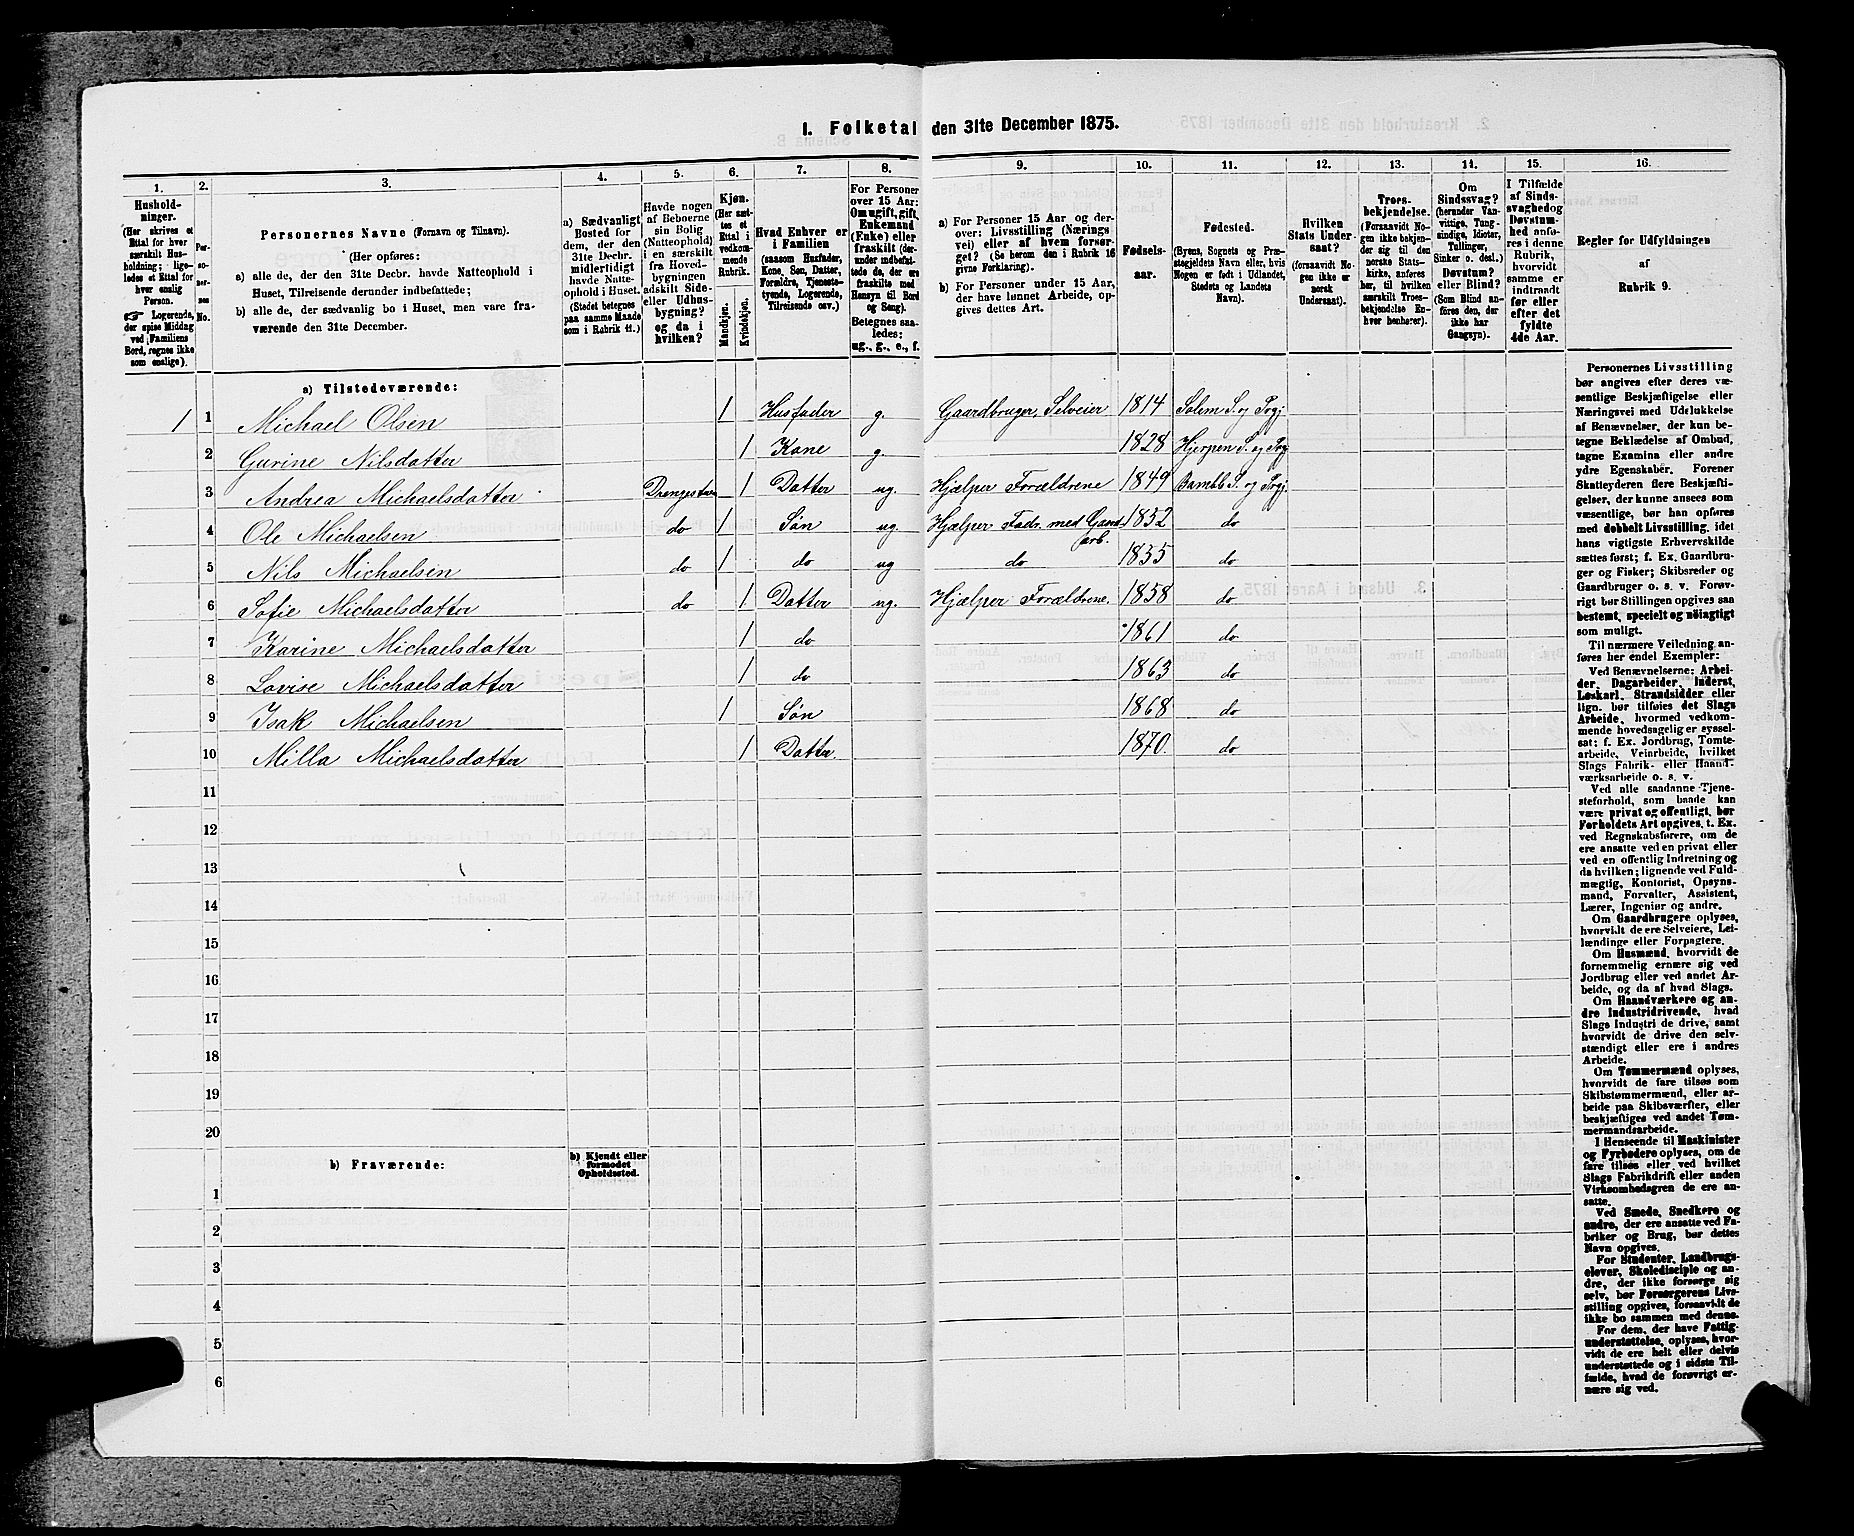 I. Folketal den 31te December 1875.
1. 2. 3. 4. 5. 6. 7. 8. 9. 10. 11. 12. 13. 14. 15. 16.
Husholdninger.
(Her skrives et
Ettal for hver
særskilt Hus-
holdning; lige-
ledes et Ettal for
hver enslig
Person.
☞ Logerende,
der spise Middag
ved Familiens
Bord, regnes ikke
som enslige).
Personernes No.
Personernes Navne (Fornavn og Tilnavn).
(Her opføres:
a) alle de, der den 31te Decbr. havde Natteophold i
Huset, Tilreisende derunder indbefattede;
b) alle de, der sædvanlig bo i Huset, men vare fra-
værende den 31te December.)
a) Sædvanligt
Bosted for
dem, der den
31te Decbr.
midlertidigt
havde Natte-
ophold i Huset.
(Stedet betegnes
paa samme Maade
som i Rubrik 11.)
Havde nogen
af Beboerne
sin Bolig
(Natteophold)
i en særskilt
fra Hoved-
bygningen
adskilt Side-
eller Udhus-
bygning?
og da i
hvilken?
Kjøn.
(Her sæt-
tes et
Ettal i
vedkom-
mende
Rubrik.
Mandkjøn.
Kvindekjøn.
Hvad Enhver er
i Familien
(saasom Husfader,
Kone, Søn, Datter,
Forældre, Tjeneste-
tyende, Logerende,
Tilreisende osv.)
For Personer
over 15 Aar:
Om ugift, gift,
Enkemand
(Enke) eller
fraskilt (der-
under indbefat-
tede de, der ere
fraskilte med
Hensyn til Bord
og Seng).
Betegnes saa-
ledes:
ug., g., e., f.
a) For Personer 15 Aar og der-
over: Livsstilling (Nærings-
vei) eller af hvem forsør-
get? (Se herom den i Rubrik 16
givne Forklaring).
b) For Personer under 15 Aar,
der have lønnet Arbeide, op-
gives dettes Art.
Fødsels-
aar.
Fødested.
(Byens, Sognets og Præ-
stegjeldets Navn eller, hvis
Nogen er født i Udlandet,
Stedets og Landets
Navn).
Hvilken
Stats Under-
saat?
(forsaavidt No-
gen ikke er
norsk
Undersaat).
Troes-
bekjendelse.
(Forsaavidt No-
gen ikke bekjen-
der sig til den
norske Stats-
kirke, anføres
her, til hvilken
særskilt Troes-
bekjendelse En-
hver henhører).
Om
Sindssvag?
(herunder Van-
vittige, Tung-
sindige, Idioter,
Tullinger,
Sinker o. desl.)
Døvstum?
eller Blind?
(Som Blind an-
føres den, der
ikke har
Gangsyn).
I Tilfælde
af Sinds-
svaghed og
Døvstum-
hed anfø-
res i denne
Rubrik,
hvorvidt
samme er
indtraadt
før eller
efter det
fyldte
4de Aar.
Regler for Udfyldningen
af
Rubrik 9.
a) Tilstedeværende:
1 1 Michael Olsen 1 Husfader g. Gaardbruger, Selveier 1814 Solem S. og Prgj
2 Gurine Nilsdatter 1 Kone g. 1828 Hjerpen S. og Prgj
3 Andrea Michaelsdatter 1 Datter ug. Hjælper Forældrene 1849 Bamble S. og Prgj.
4 Ole Michaelsen do 1 Søn ug. Hjælper Fadr. med Gaardsarb. 1852 do
5 Nils Michaelsen do 1 do ug do 1855 do
6 Sofie Michaelsdatter do 1 Datter ug. Hjælper Forældrene. 1858 do
7 Karine Michaelsdatter 1 do 1861 do
8 Lovise Michaelsdatter 1 do 1863 do
9 Isak Michaelsen 1 Søn 1868 do
10 Milla Michaelsdatter 1 Datter. 1870. do
11
12
13
14
15
16
17
18
19
20
b) Fraværende:
b) Kjendt eller
formodet
Opholdssted.
1
2
3
4
5
6
Personernes Livsstilling
bør angives efter deres væ-
sentlige Beskjæftigelse eller
Næringsvei med Udelukkelse
af Benævnelser, der kun be-
tegne Beklædelse af Ombud,
tagne Examina eller andre
ydre Egenskaber. Forener
Skatteyderen flere Beskjæfti-
gelser, der kunne ansees som
væsentlige, bør han opføres
med dobbelt Livsstilling, idet
hans vigtigste Erhvervskilde
sættes først; f. Ex. Gaardbru-
ger og Fisker; Skibsreder og
Gaardbruger o. s. v. Forøv-
rigt bør Stillingen opgives saa
bestemt, specielt og nøiagtigt
som muligt.
Til nærmere Veiledning an-
føres her endel Exempler:
Ved Benævnelserne: Arbei-
der, Dagarbeider, Inderst,
Løskarl, Strandsidder eller
lign. bør tilføies det Slags
Arbeide, hvormed vedkom-
mende hovedsagelig er syssel-
sat; f. Ex. Jordbrug, Tomte-
arbeide, Veiarbeide, hvilket
Slags Fabrik- eller Haand-
værksarbeide o. s. v.
Ved alle saadanne Tjene-
steforhold, som baade kan
være privat og offentligt, bør
Forholdets Art opgives, t. Ex.
ved Regnskabsførere, om de
ere ansatte ved en privat eller
ved en offentlig Indretning og
da hvilken; lignende ved Fuld-
mægtig, Kontorist, Opsyns-
mand, Forvalter, Assistent,
Lærer, Ingeniør og andre.
Om Gaardbrugere oplyses,
hvorvidt de ere Selveiere, Lei-
lændinge eller Forpagtere.
Om Husmænd, hvorvidt de
fornemmelig ernære sig ved
Jordbrug eller ved andet Ar-
beide, og da af hvad Slags.
Om Haandværkere og an-
dre Industridrivende, hvad
Slags Industri de drive, samt
hvorvidt de drive den selv-
stændigt eller ere i andres
Arbeide.
Om Tømmermænd oplyses,
hvorvidt de fare tilsøs som
Skibstømmermænd, eller ar-
beide paa Skibsværfter, eller
beskjæftiges ved andet Tøm-
mermandsarbeide.
I Henseende til Maskinister
og Fyrbødere oplyses, om de
fare tilsøs eller ved hvilket
Slags Fabrikdrift eller anden
Virksomhedsgren de ere an-
satte.
Ved Smede, Snedkere og
andre, der ere ansatte ved Fa-
briker og Brug, bør dettes
Navn opgives.
For Studenter, Landbrugs-
elever, Skoledisciple og an-
dre, der ikke forsørge sig
selv, bør Forsørgerens Livs-
stilling opgives, forsaavidt de
ikke bo sammen med denne.
For dem, der have Fattig-
understøttelse, oplyses, hvor-
vidt de ere helt eller delvis
understøttede og i sidste Til-
fælde, hvad de forøvrigt er-
nære sig ved.